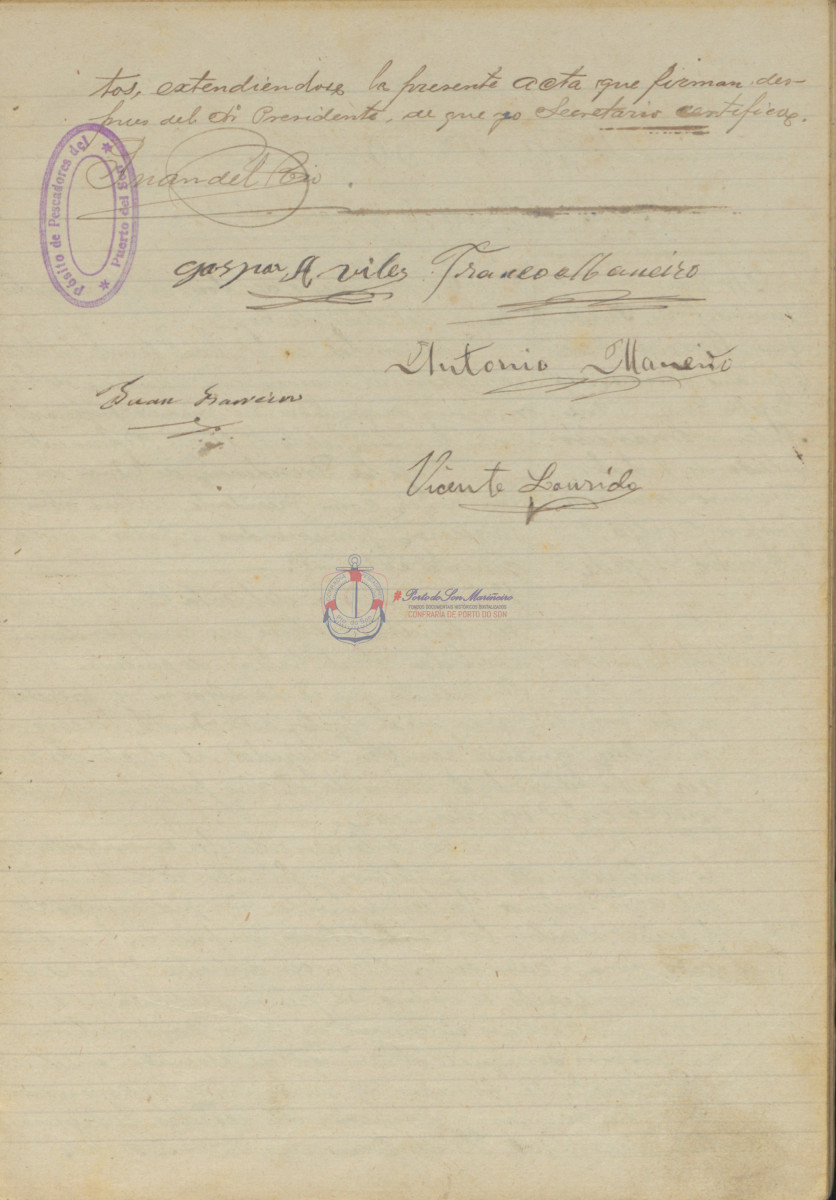 tos, extendiéndose la presente acta que firman des-
pues del Sr Presidente, de que yo Secretario certifico.
Pósito de Pescadores del
Puerto del Son
Juan del Rio
Gaspar Aviles
Franco Maneiro
Antonio Maneiro
Juan
Vicente Lourido
#Porto do Son Mariñeiro
FONDOS DOCUMENTAIS HISTÓRICOS DIXITALIZADOS
CONFRARÍA DE PORTO DO SON